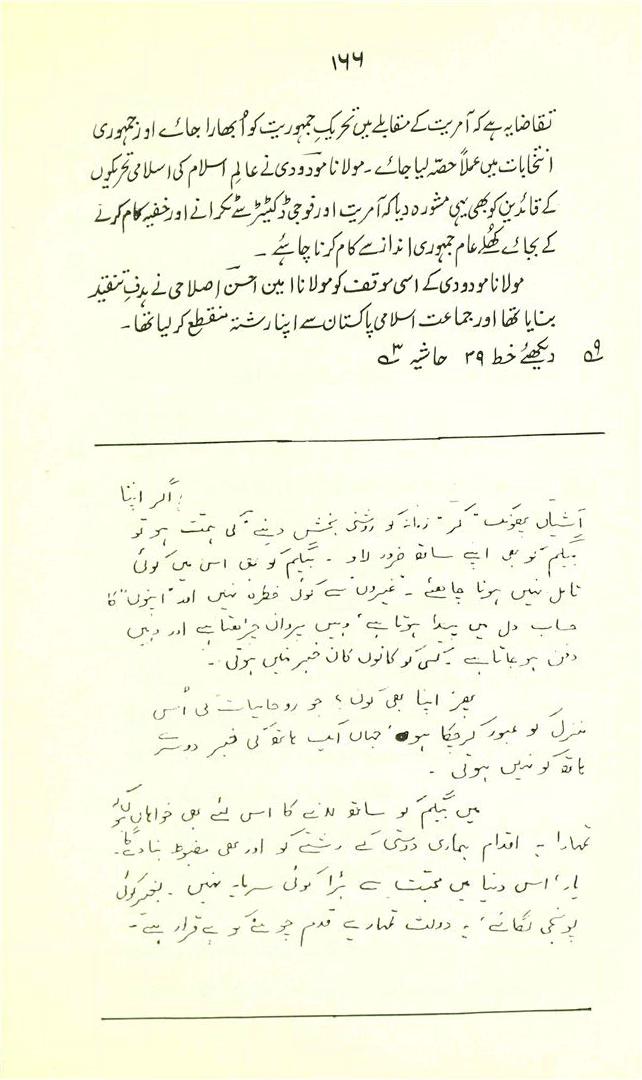 ۱۶۶
تقاضا یہ ہے کہ آمریت کے مقابلے میں تحریکِ جمہوریت کو اُبھارا جائے اور جمہوری
انتخابات میں عملاً حصّہ لیا جائے۔ مولانا مودودی نے عالمِ اسلام کی اسلامی تحریکوں
کے قائدین کو بھی یہی مشورہ دیا کہ آمریت اور فوجی ڈکٹیٹر سے ٹکرانے اور خفیہ کام کرنے
کے بجائے کھلے عام جمہوری انداز سے کام کرنا چاہئے۔
مولانا مودودی کے اسی موقف کو مولانا امین احسن اصلاحی نے ہدفِ تنقید
بنایا تھا اور جماعت اسلامی پاکستان سے اپنا رشتہ منقطع کر لیا تھا۔
۹ دیکھئے خط ۲۹ حاشیہ ۳
اگر اپنا
آشیاں پھونک کر زمانہ کو روشنی بخش دینے کی ہمت ہو تو
بیگم کو بھی اپنے ساتھ ضرور لاؤ۔ بیگم کو بھی اس میں کوئی
تامل نہیں ہونا چاہئے۔ "غیروں" سے کوئی خطرہ نہیں اور "اپنوں" کا
حساب دل میں پیدا ہوتا ہے، وہیں پروان چڑھتا ہے اور وہیں
دفن ہو جاتا ہے۔ کسی کو کانوں کان خبر نہیں ہوتی۔
پھر اپنا بھی کون؟ جو روحانیات کی اُس
منزل کو عبور کر چکا ہو، جہاں ایک ہاتھ کی خبر دوسرے
ہاتھ کو نہیں ہوتی۔
میں بیگم کو ساتھ لانے کا اس لئے بھی خواہاں ہوں کہ
تمہارا یہ اقدام ہماری دوستی کے رشتے کو اور بھی مضبوط بنا دے گا۔
یار، اس دنیا میں محبت سے بڑا کوئی سرمایہ نہیں۔ بغیر کوئی
پونجی لگائے، یہ دولت تمہارے قدم چومنے کو بے قرار ہے۔